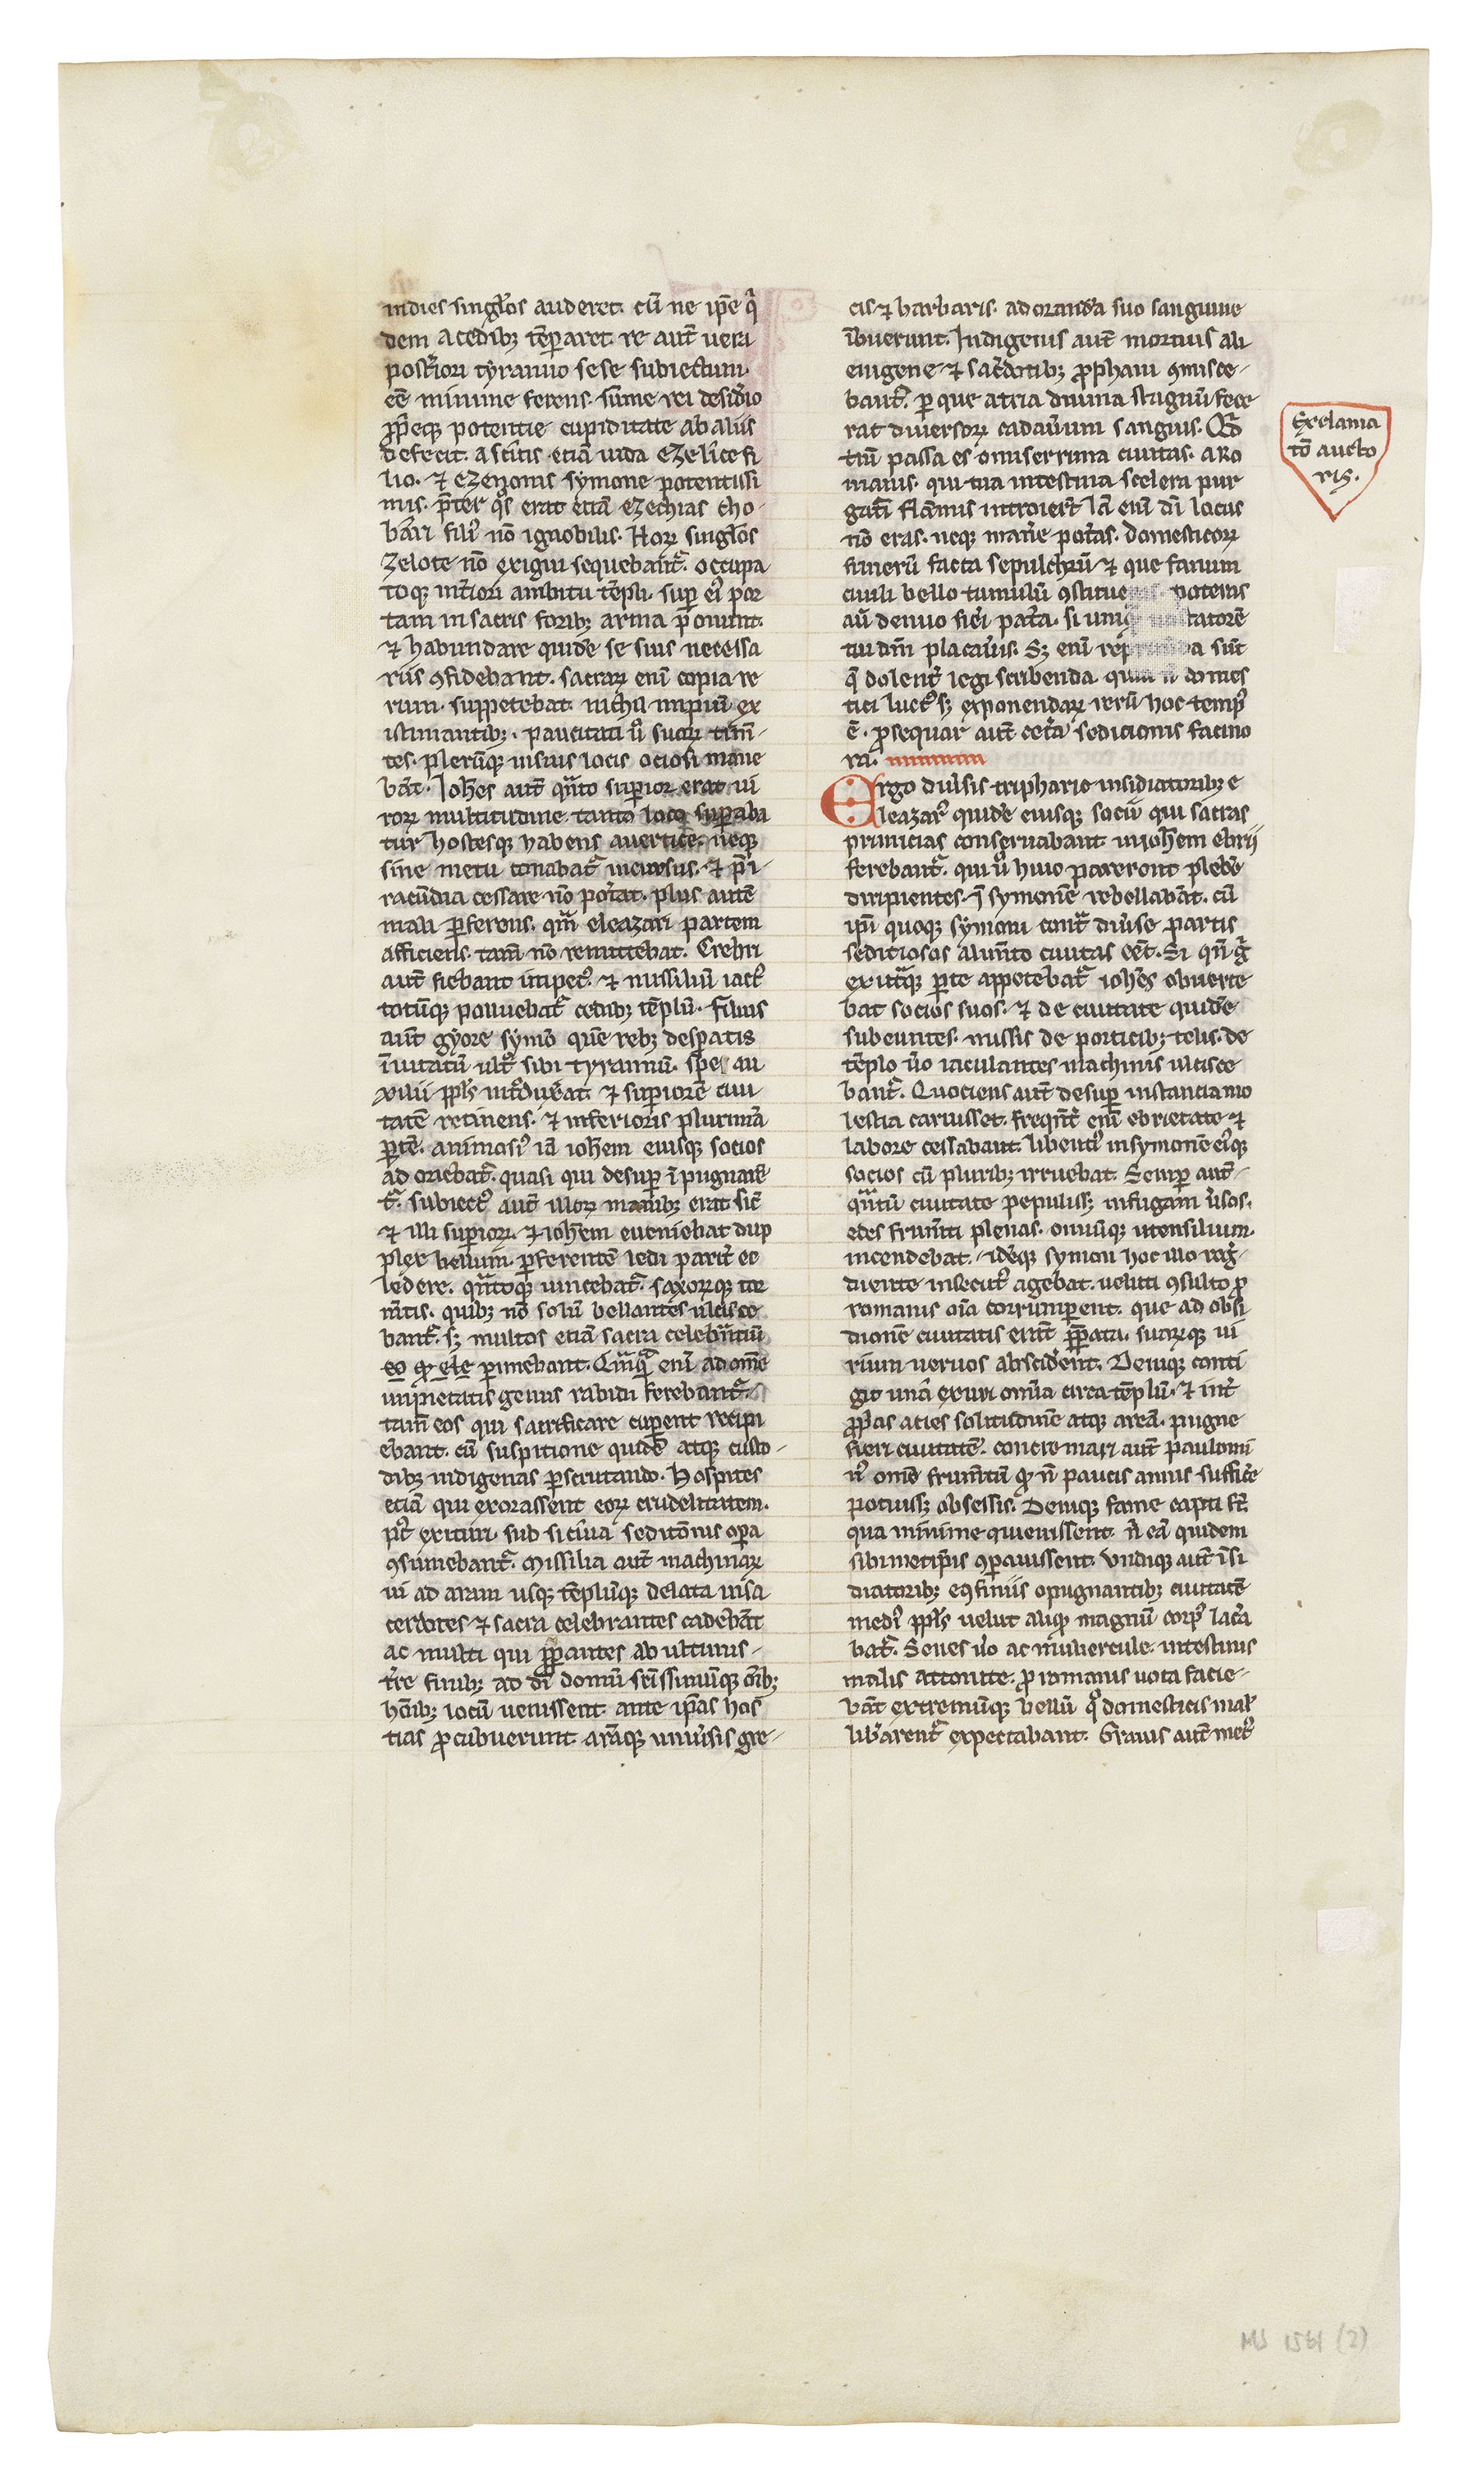 indies singl'os auderet. cū ne ip̄e q'
dem a cedib; tēp̄aret. re aut̄ uera
post'iori tyranno sese subiectum.
eē minime ferens. sūme rei desid'io
p̄p̄eq; potentie cupiditate ab aliis
defecit. ascitis etiā iuda ezelice fi
lio. ⁊ ezeronis symone potentissi
mis. p̄ter q̊s erat etiā ezechias cho-
bari fili' nō ignobilis. Horꝝ singl'os
zelote nō exigui sequebant᷑. occupa
toq; int'iori ambitu tēpli. sup̄ ei' por
tam in sacris forib; arma p̄onunt.
⁊ habundare quidē se suis necessa
riis ꝯfidebant. sacrarꝝ eni copia re
rum. suppetebat. nichil impiū ex
istimantib;. paucitati ū suorꝝ timē-
tes. plerūq; in suis locis ociosi mane
bāt. Ioħes aut̄ qᵃnto sup̄ior erat ui
rorꝝ multitudine. tanto loco sup̄aba
tur. hostesq; habens a uertice. neq;
sine metu conabat᷑ incursus. ⁊ p̄ i-
racūdia cessare nō pot'at. plus autē
mali p̄ferens. qᵃm eleazari partem
afficiens. tam̄ nō remittebat. Crebri
aut̄ fiebant impet'. ⁊ missiliū iact'
totūq; polluebat᷑ cedib; tēplū. Filius
aut̄ gyore symō quē reb; desp̄atis
īuitatū ult᷑ sibi tyrannū. spe au
xilii pp̄ls int᷑duxerat ⁊ sup̄iorē ciui
tatē retinens. ⁊ inferioris plurimā
p̄tē. animosi' iā ioħem eiusq; socios
adoriebat᷑. quasi qui desup̄ īpugnare
t᷑. subiect' aut̄ illorꝝ manib; erat sic̄
⁊ illi sup̄iorꝝ. ⁊ ioħem eueniebat dup
plex bellum. p̄ferentē ledi parit' ⁊
ledere. qᵃntoq; uincebat᷑. saxorꝝq; tor
m̄tis. quib; nō solū bellantes ulcisce
bant᷑. s; multos etiā sacra celebrātiū
eo qꝫ ele p̄imebant. Qᵃmqᵃ eni ad omē
impietatis genus rabidi ferebant᷑.
tam̄ eos qui sacrificare cup̄ent recipi
ebant. cū suspitione quidē atq; custo-
dib; indigenas p̄scrutando. hospites
etiā qui exorassent eorꝝ crudelitatem.
p't exituri. sub sicina seditōnis op̄a
ꝯsumebant᷑. Missilia aut̄ machinarꝝ
ui ad aram usq; tēplūq; delata in sa
cerdotes ⁊ sacra celebrantes cadebāt
ac multi qui p̄p̄antes ab ultimis-
t̄re finib; ad di domū sc̄issimūq; oīb;
hoīb; locū uenissent. ante ip̄as hos
tias p̄cubuerunt. arāq; uniu'sis gre-
cis ⁊ barbaris. adoranda suo sanguine
ībuerunt. Indigenis aut̄ mortuis ali
enigene. ⁊ sac̄dotib; p̄phani ꝯmisce-
bant᷑. per que atria diuina stagnū fece
rat diuersorꝝ cadau'um sanguis. Qd̄
tm̄ passa es o miserrima ciuitas. a Ro
manis. qui tua intestina scelera pur
gati flāmis introierūt. Iā eni di locus
nō eras. neq; man'e pot'as. domesticorꝝ
funerū facta sepulchrū. ⁊ que fanum
ciuili bello tumulū ꝯstitue poteris
aū denuo fieri pac̄ta. si tatorē
tuū dm̄ placau'is. S; eni a sūt
q̄ dolent' legi scribenda domes
tici luct' s; exponendarꝝ rerū hoc temp'
ē. p̄sequar aut̄ cet'a sedicionis facino
ra.
Ergo diu'sis tripharie insidiatorib; e
leazar' quidē eiusq; socii qui sacras
primicias conseruabant in ioħem ebrii
ferebant᷑. qui ū huic parerent plebē
diripientes. ī symonē rebellabāt. cū
ip̄i quoq; symoni contᵃ diu'se partis
seditiosos alimēto ciuitas eēt. Si qn̄ g᷑
ex utᵃq; p̄te appetebat᷑ ioħes obuerte
bat socios suos. ⁊ de ciuitate quidē
subeuntes. missis de porticib; telis. de
tēplo ū'o iaculantes machinis ulcisce
bant᷑. Quociens aut̄ desup̄ instancia mo
lestia caruisset. freqn̄t' eni ebrietate ⁊
labore cessabant. libenti' in symonē ei'q;
socios cū plurib; irruebat. Semp̄ aut̄-
qᵃntū ciuitate pepuliss; in fugam ū'sos.
edes frum̄ti plenas. omniūq; utensilium.
incendebat. idēq; symon hoc illo regᷓ-
diente insecut' agebat. ueluti ꝯsulto p̄
romanis oīa corrump̄ent. que ad obsi
dionē ciuitatis erāt p̄p̄ata. suarꝝq; ui
rium neruos absciderent. Deniq; conti
git unā exuri omīa circa tēplū. ⁊ int'
p̄p̄as acies solitudinē atq; areā. pugne
fieri ciuitatē. concremari aut̄ paulomi
n' omē frum̄tū qꝫ n̄ paucis annis suffic'e
potuiss; obsessis. Deniq; fame capti st̄
qua minime quieuissent. n̄ eā quidem
sibimetip̄is ꝯp̄auissent. Vndiq; aut̄ īsi
diatorib; eꝯfiniis opugnantib; ciuitatē
medi' pp̄ls uelut aliq; magnū corp' lac'a
bat᷑. Senes ū'o ac muliercule. intestinis
malis attonite. p̄ romanis uota facie-
bāt extremūq; bellū q̊ domesticis mal'
lib'arent᷑ expectabant. Grauis aut̄ met'
Exclama
tō aucto
ris.
MS 1561 (2)